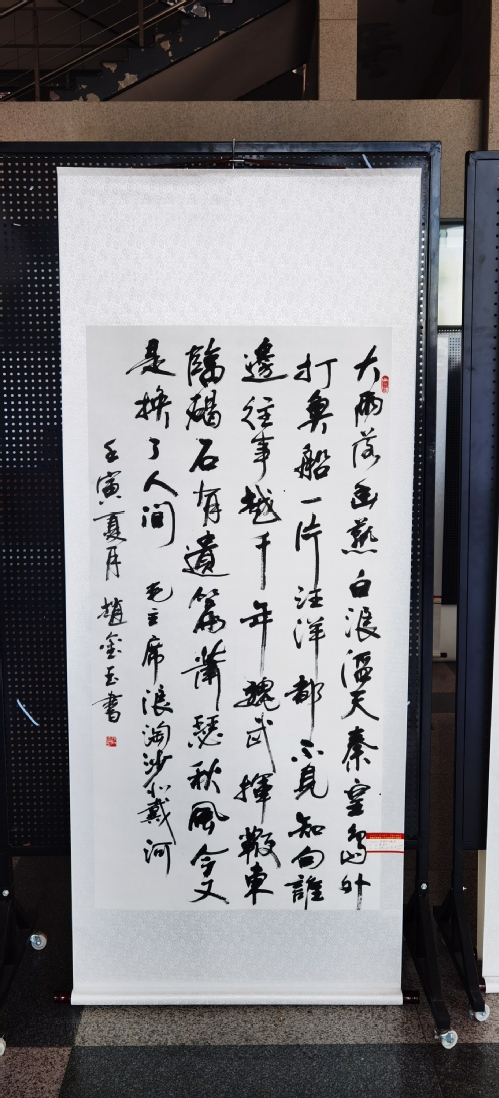 大雨落幽燕白浪滔天秦皇島外
打魚船一片汪洋都不見知向誰
邊往事越千年魏武揮鞭東
臨碣石有遺篇蕭瑟秋風今又
是換了人間 毛主席浪淘沙北戴河
壬寅夏月趙金玉書